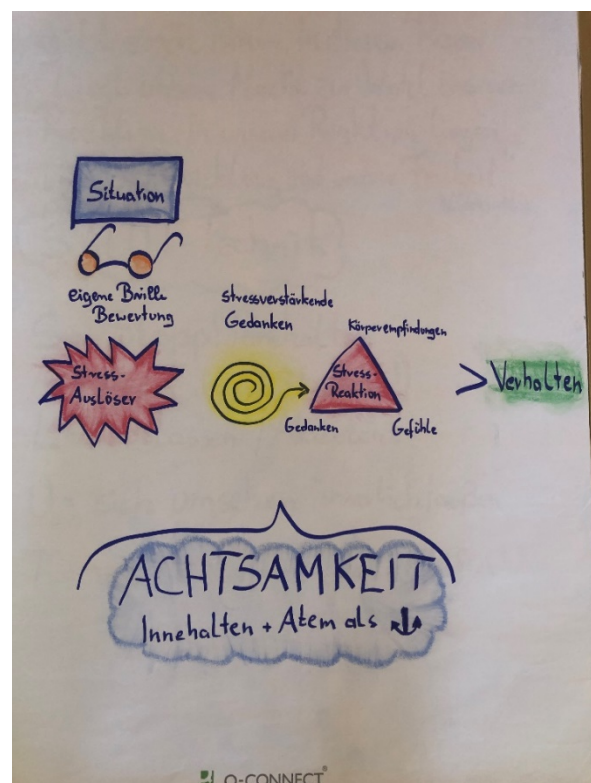 Situation
eigene Brille
Bewertung
Stress-
Auslöser
stressverstärkende
Gedanken
Körperempfindungen
Stress-
Reaktion
Gedanken
Gefühle
> Verhalten
ACHTSAMKEIT
Innehalten + Atem als
Q-CONNECT®